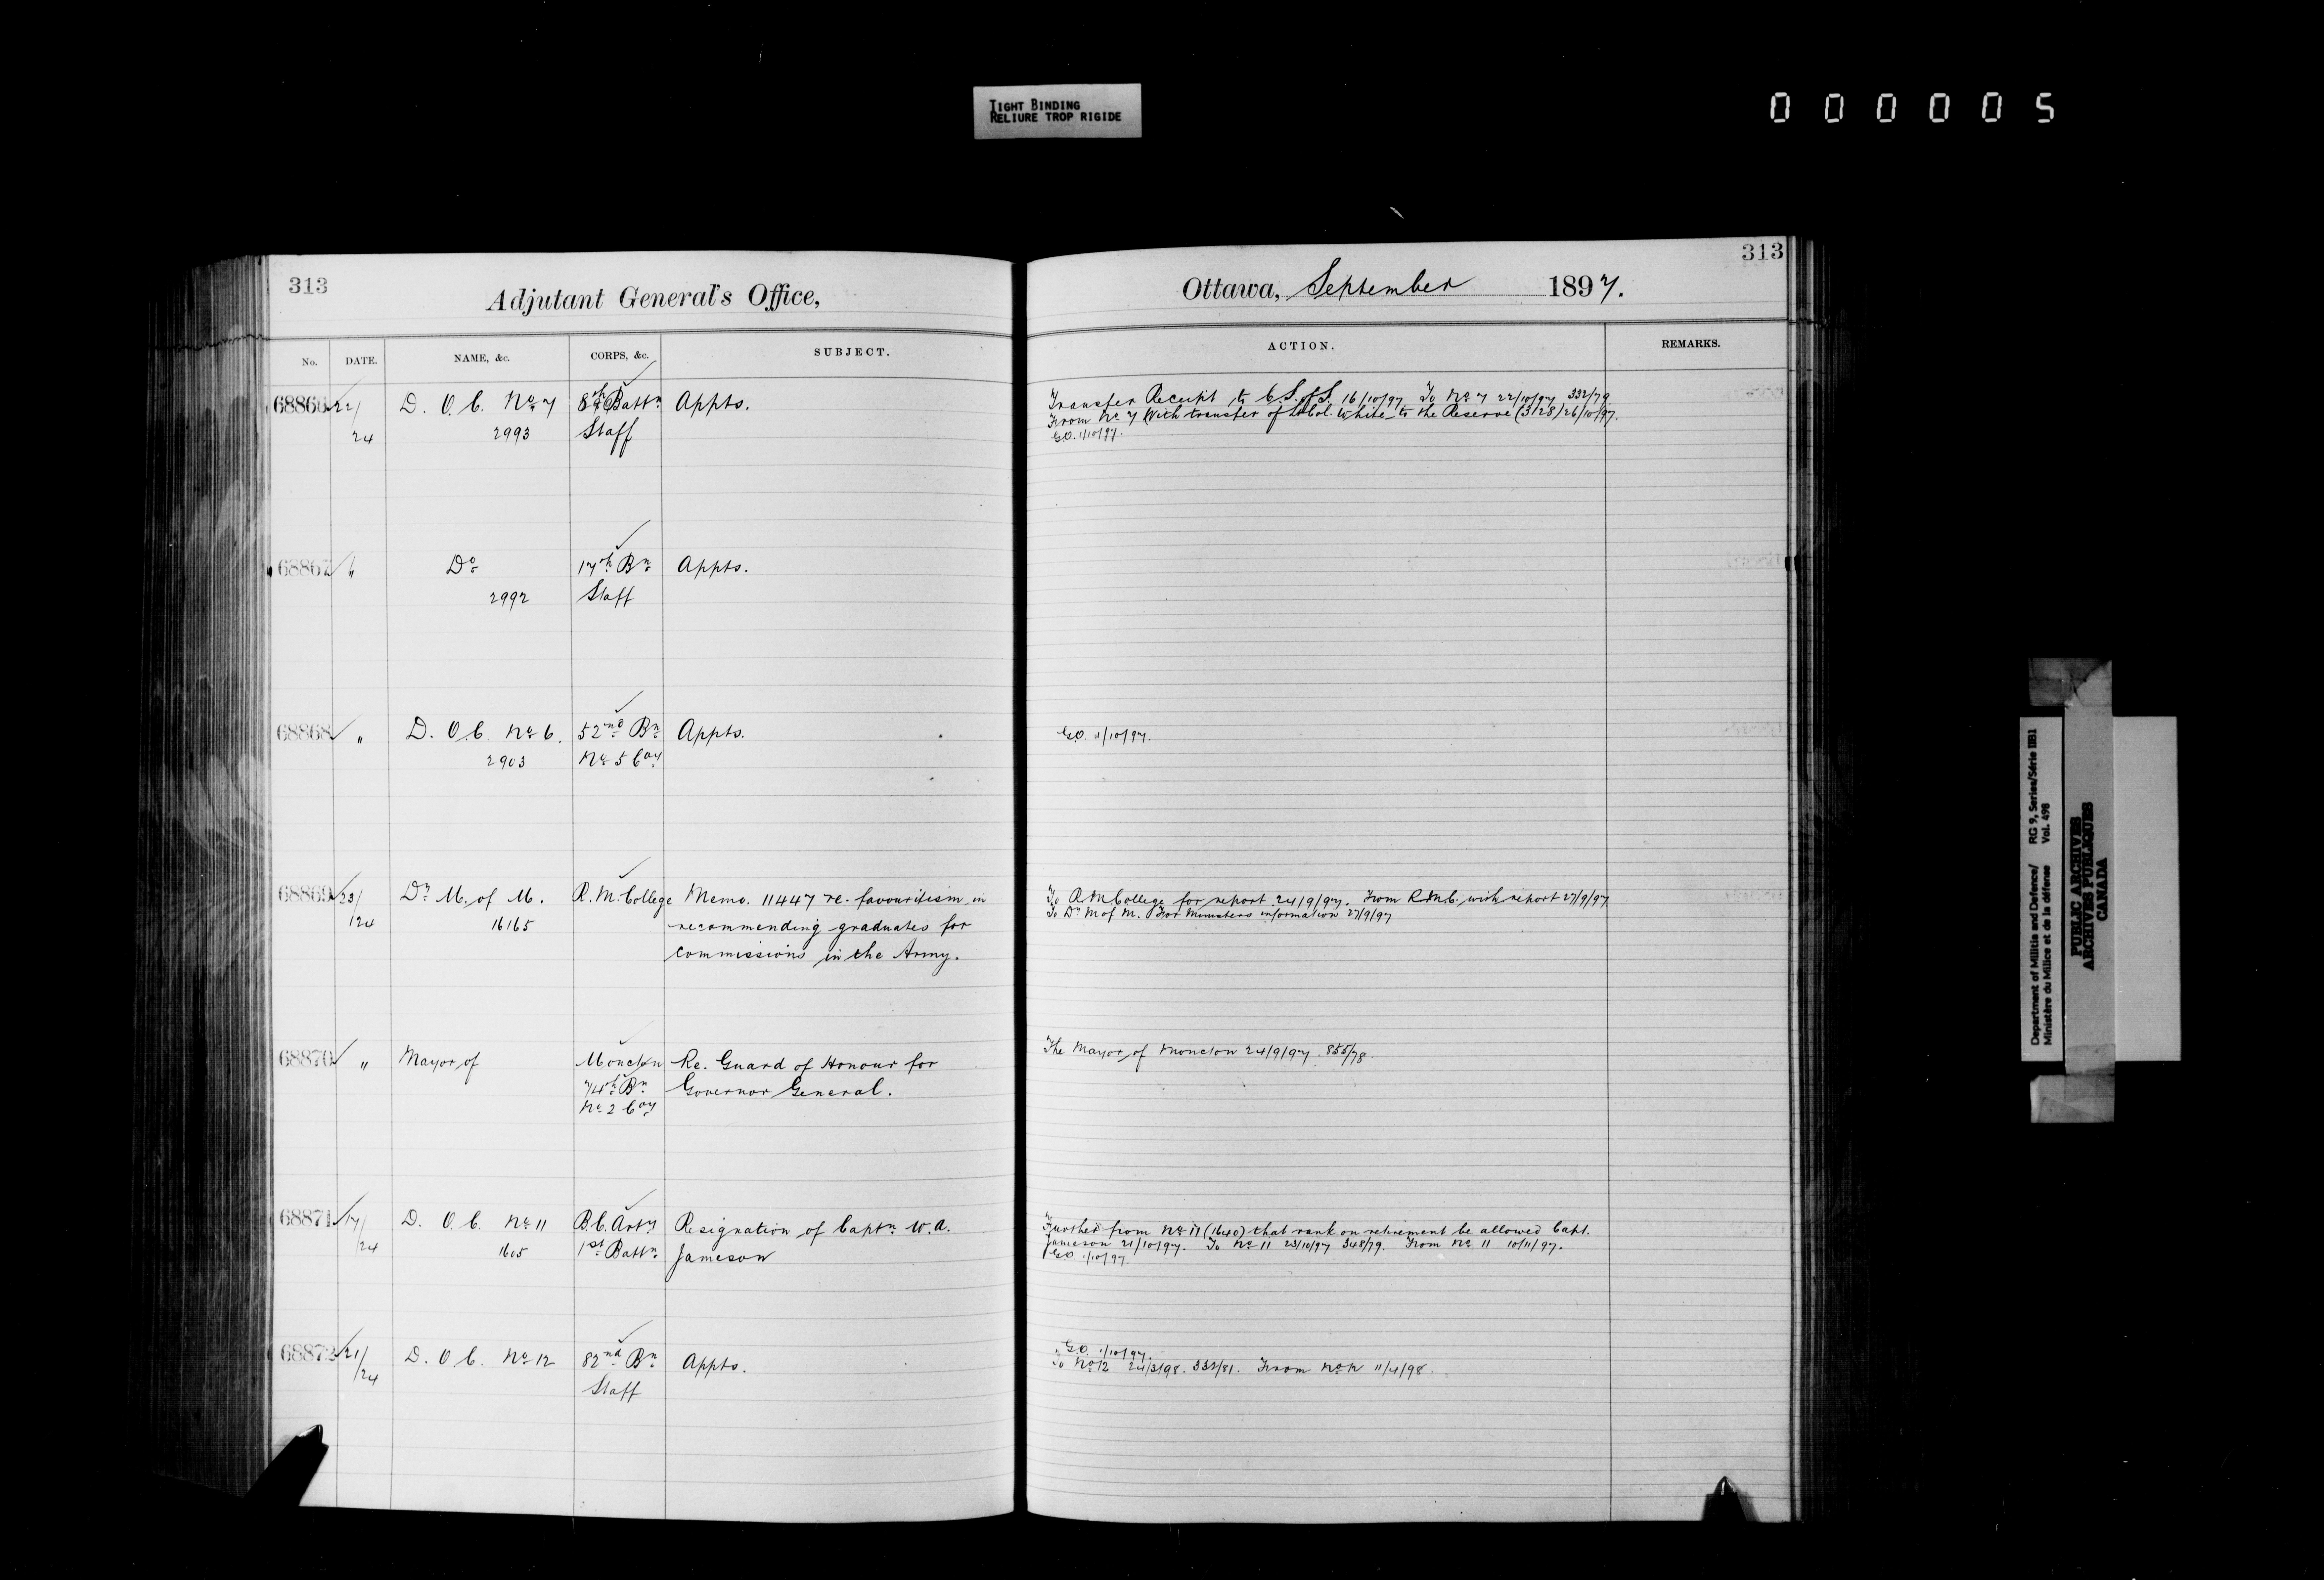 TIGHT BINDING
RELIURE TROP RIGIDE
000005
313
Adjutant General's Office,
No. DATE. NAME, &c. CORPS, &c. SUBJECT.
68866 22/ D. O. C. No 7 Battn Appts.
24 2993 Staff
68867 " Do 17th Bn Appts.
2992 Staff
68868 " D. O. C. No 6. 52nd Bn Appts.
2903 No 5 Coy
68869 23/ Dr M. of M. R. M. College Memo. 11447 re. favouritism in
/24 16165 recommending graduates for
commissions in the Army.
68870 " Mayor of Moncton Re. Guard of Honour for
74th Bn Governor General.
No 2 Coy
68871 17/ D. O. C. No 11 B.C. Arty Resignation of Captn W. A.
/24 1605 1st Battn Jameson
68872 21/ D. O. C. No 12 82nd Bn Appts.
/24 Staff
313
Ottawa, September 1897.
ACTION. REMARKS.
Transfer Receipt to C. S. of S. 16/10/97 To No 7 22/10/97 332/79.
From No 7 With transfer of Lt Col. White to the Reserve (3128) 26/10/97.
G.O. 1/10/97.
G.O. 11/10/97.
To R M College for report 24/9/97. From R.M.C. with report 27/9/97
To Dr M of M. For Ministers information 27/9/97
The Mayor of Moncton 24/9/97. 855/78.
Further from No 11 (1640) that rank on retirement be allowed Capt.
Jameson 21/10/97. To No 11 23/10/97 348/79. From No 11 10/11/97.
G.O. 1/10/97.
G.O. 1/10/97.
To No 12 24/3/98. 332/81. From No 12 11/4/98.
Department of Militia and Defence/ RG 9, Series/Série IIB1
Ministère du Milice et de la défense Vol. 498
PUBLIC ARCHIVES
ARCHIVES PUBLIQUES
CANADA